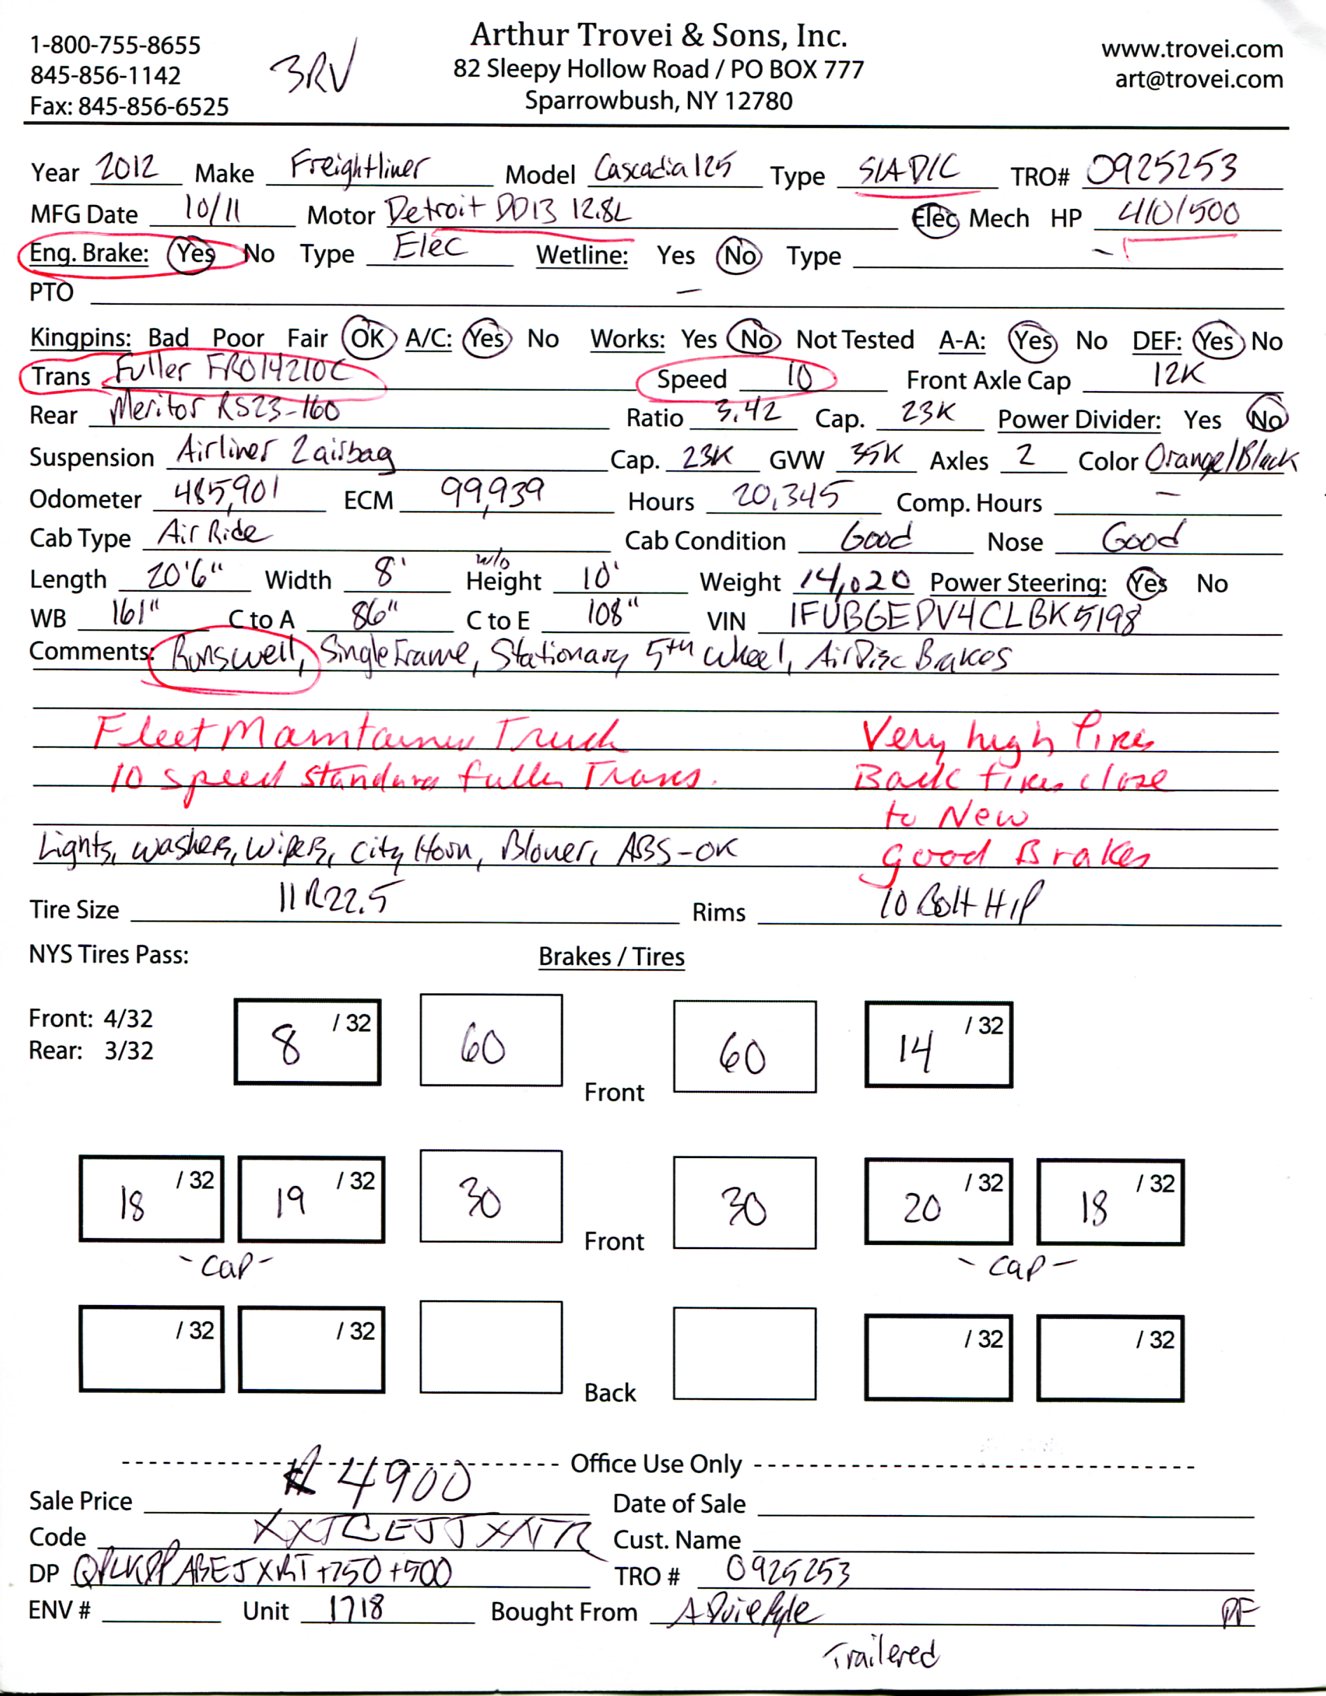 1-800-755-8655
845-856-1142
Fax: 845-856-6525
3RV
Arthur Trovei & Sons, Inc.
82 Sleepy Hollow Road / PO BOX 777
Sparrowbush, NY 12780
www.trovei.com
art@trovei.com
Year 2012 Make Freightliner Model Cascadia 125 Type S/A D/C TRO# 0925253
MFG Date 10/11 Motor Detroit DD13 12.8L Elec Mech HP 410/500
Eng. Brake: Yes No Type Elec Wetline: Yes No Type —
PTO —
Kingpins: Bad Poor Fair OK A/C: Yes No Works: Yes No Not Tested A-A: Yes No DEF: Yes No
Trans Fuller FRO14210C Speed 10 Front Axle Cap 12K
Rear Meritor RS23-160 Ratio 3.42 Cap. 23K Power Divider: Yes No
Suspension Airliner 2 airbag Cap. 23K GVW 35K Axles 2 Color Orange/Black
Odometer 485,901 ECM 99,939 Hours 20,345 Comp. Hours —
Cab Type Air Ride Cab Condition Good Nose Good
Length 20'6" Width 8' w/o Height 10' Weight 14,020 Power Steering: Yes No
WB 161" C to A 86" C to E 108" VIN 1FUBGEDV4CLBK5198
Comments: Runs well, Single Frame, Stationary 5th wheel, Air Disc Brakes
Fleet Maintained Truck Very high Tires
10 speed standard fuller Trans. Back tires close
to New
Lights, washers, wipers, city Horn, Blower, ABS-OK good Brakes
Tire Size 11R22.5 Rims 10 Bolt H/P
NYS Tires Pass: Brakes / Tires
Front: 4/32
Rear: 3/32
8 /32 60 Front 60 14 /32
18 /32 19 /32 30 Front 30 20 /32 18 /32
-cap- -cap-
/32 /32 Back /32 /32
Office Use Only
Sale Price 4900 Date of Sale
Code Cust. Name
DP +750 +500 TRO # 0925253
ENV # Unit 1718 Bought From PF
Trailered